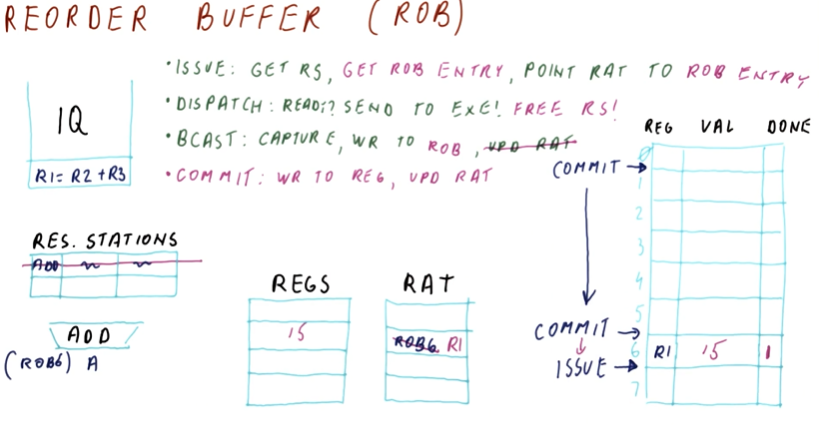 REORDER BUFFER (ROB)
• ISSUE: GET RS, GET ROB ENTRY, POINT RAT TO ROB ENTRY
• DISPATCH: READY? SEND TO EXE! FREE RS!
• BCAST: CAPTURE, WR TO ROB, UPD RAT
• COMMIT: WR TO REG, UPD RAT
IQ
R1= R2+R3
RES. STATIONS
ADD
ADD
(ROB6) A
REGS
15
RAT
ROB6 R1
COMMIT →
COMMIT →
ISSUE →
REG VAL DONE
0
1
2
3
4
5
6 R1 15 1
7